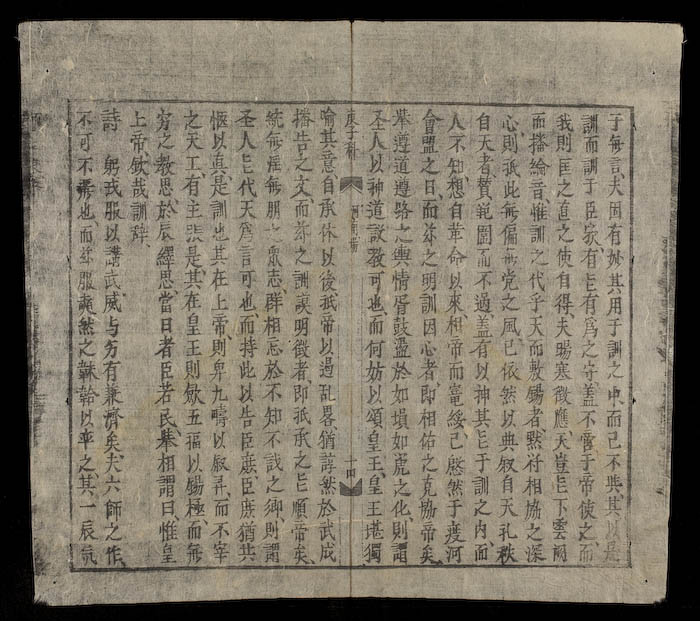 于每言夫固有妙其用于訓之中而已不然其以是
訓而訓于臣家有㠯有為之守蓋不啻于帝使之而
我則匡之直之使自得夫暘寒徵應天豈㠯下雲雨
而播綸音惟訓之代乎天而敷錫者默符相協之深
心則祇此無偏無党之風已依然以典叙自天礼秩
自天者贊範圍而不過蓋有以神其㠯于訓之内面
人不知想自革命以來相帝而寵綏已慇然于度河
會盟之日而茲之明訓因心者即相佑之克協帝矣
舉遵道遵路之輿情胥鼓盪於如塤如篪之化則謂
圣人以神道設教可也而何妨以頌皇王皇王堪獨
庚子科 河南場 十四
喻其意自承休以後祇帝以遏乱畧猶諄然於武成
播告之文而茲之訓謨明徵者即祇承之㠯順帝矣
統無淫無朋之衆志群相忘於不知不識之鄉則謂
圣人㠯代天為言可也而持此以告臣庶臣庶猶共
惬以真是訓也其在上帝則畀九疇以叙彛而不宰
之天工有主張是其在皇王則歛五福以錫極而無
穷之教思於辰繹思當日者臣若民舉相謂曰惟皇
上帝欽哉訓辞
詩 躬戎服以講武威与穷有兼濟矣夫六師之作
不可不需也而茲服䞓然之韎韐以率之其一辰氣